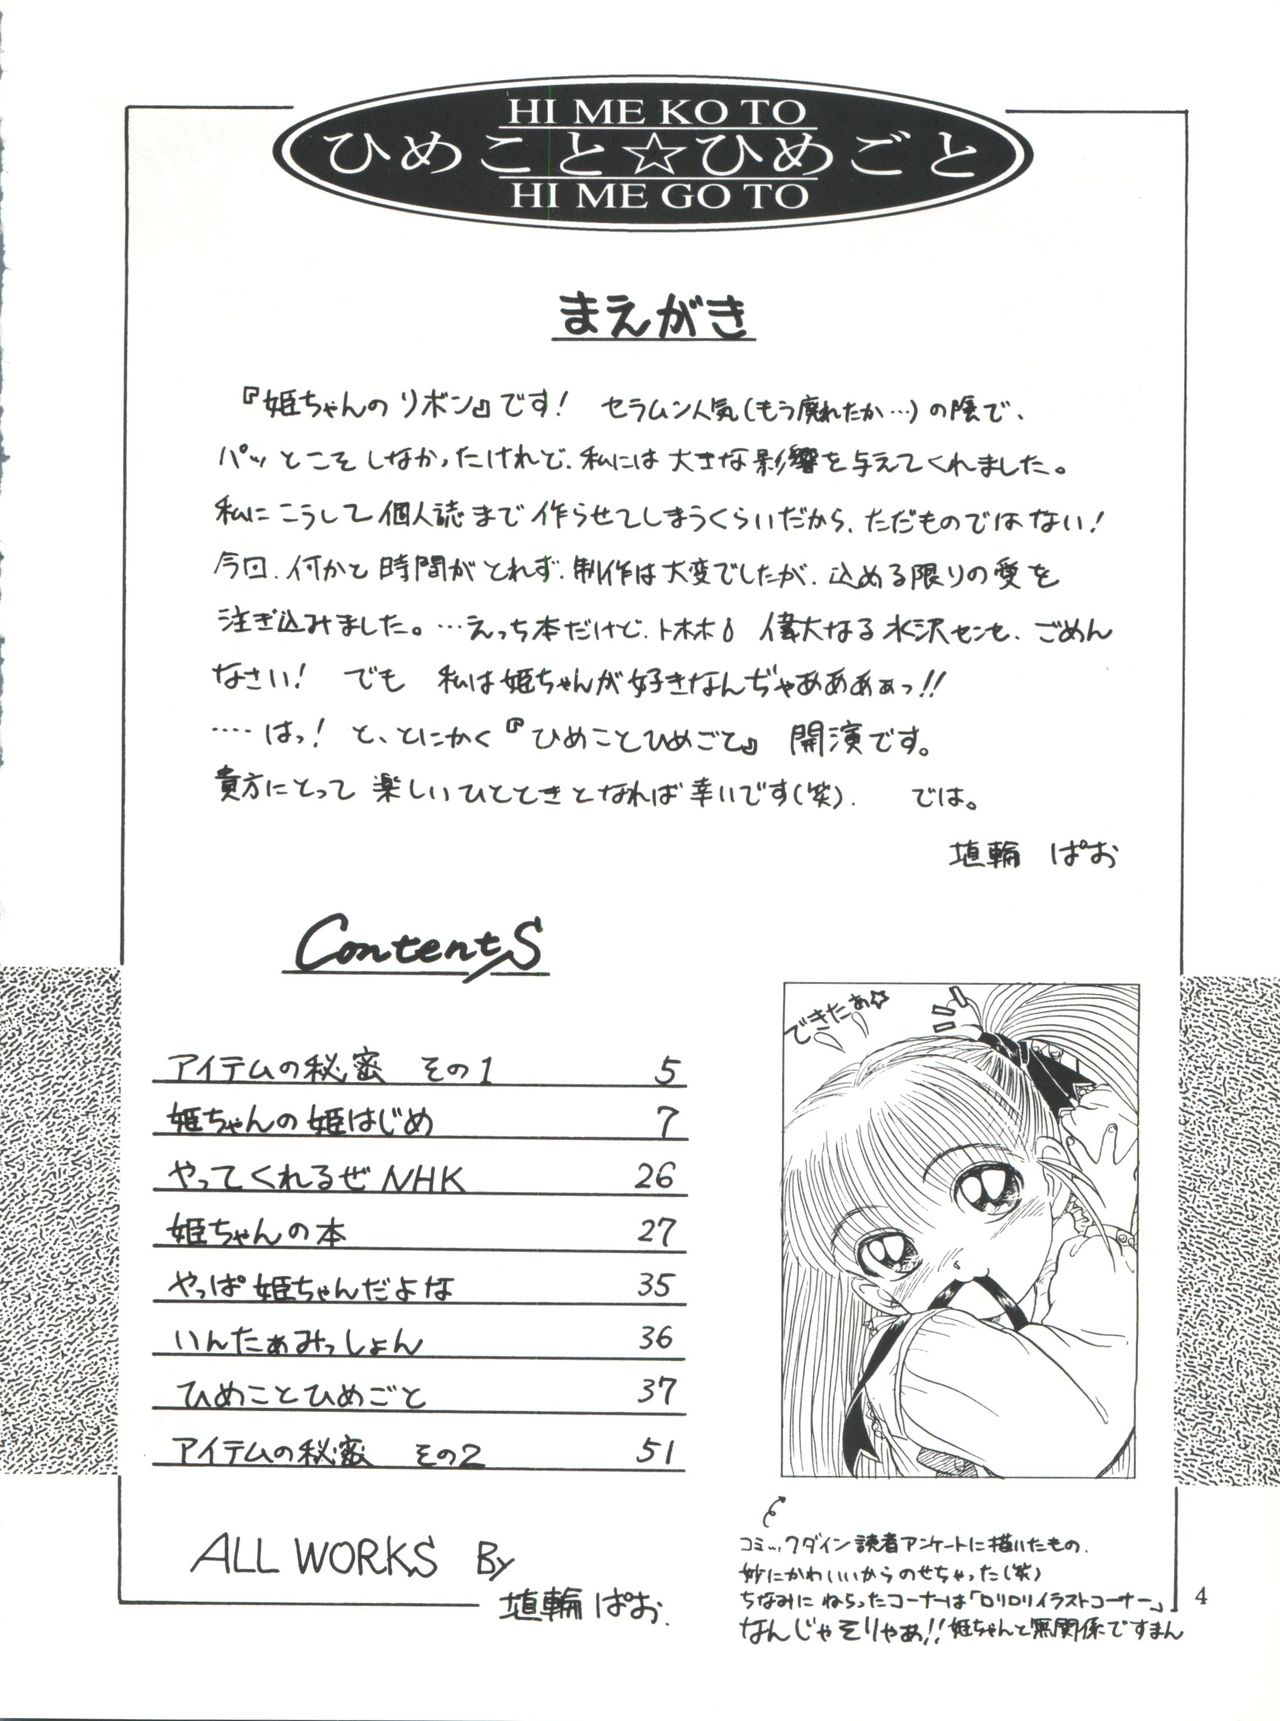 HI ME KO TO
ひめこと☆ひめごと
HI ME GO TO
まえがき
『姫ちゃんのリボン』です! セラムン人気(もう廃れたか…)の陰で、
パッとこそしなかったけれど、私には大きな影響を与えてくれました。
私にこうして個人誌まで作らせてしまうくらいだから、ただものではない!
今回、何かと時間がとれず、制作は大変でしたが、込める限りの愛を
注ぎ込みました。…えっち本だけど、トホホ 偉大なる水沢センセ、ごめん
なさい! でも 私は姫ちゃんが好きなんぢゃあああぁっ!!
‥‥はっ! と、とにかく『ひめことひめごと』 開演です。
貴方にとって楽しいひとときとなれば幸いです(笑). では。
埴輪 ぱお
Contents
アイテムの秘密 その1 5
姫ちゃんの姫はじめ 7
やってくれるぜNHK 26
姫ちゃんの本 27
やっぱ姫ちゃんだよな 35
いんたぁみっしょん 36
ひめことひめごと 37
アイテムの秘密 その2 51
ALL WORKS By
埴輪 ぱお.
できたぁ☆
コミックダイン読者アンケートに描いたもの.
妙にかわいいからのせちゃった(笑)
ちなみに ねらったコーナーは「ロリロリイラストコーナー」
なんじゃそりゃあ!! 姫ちゃんと無関係ですまん
4